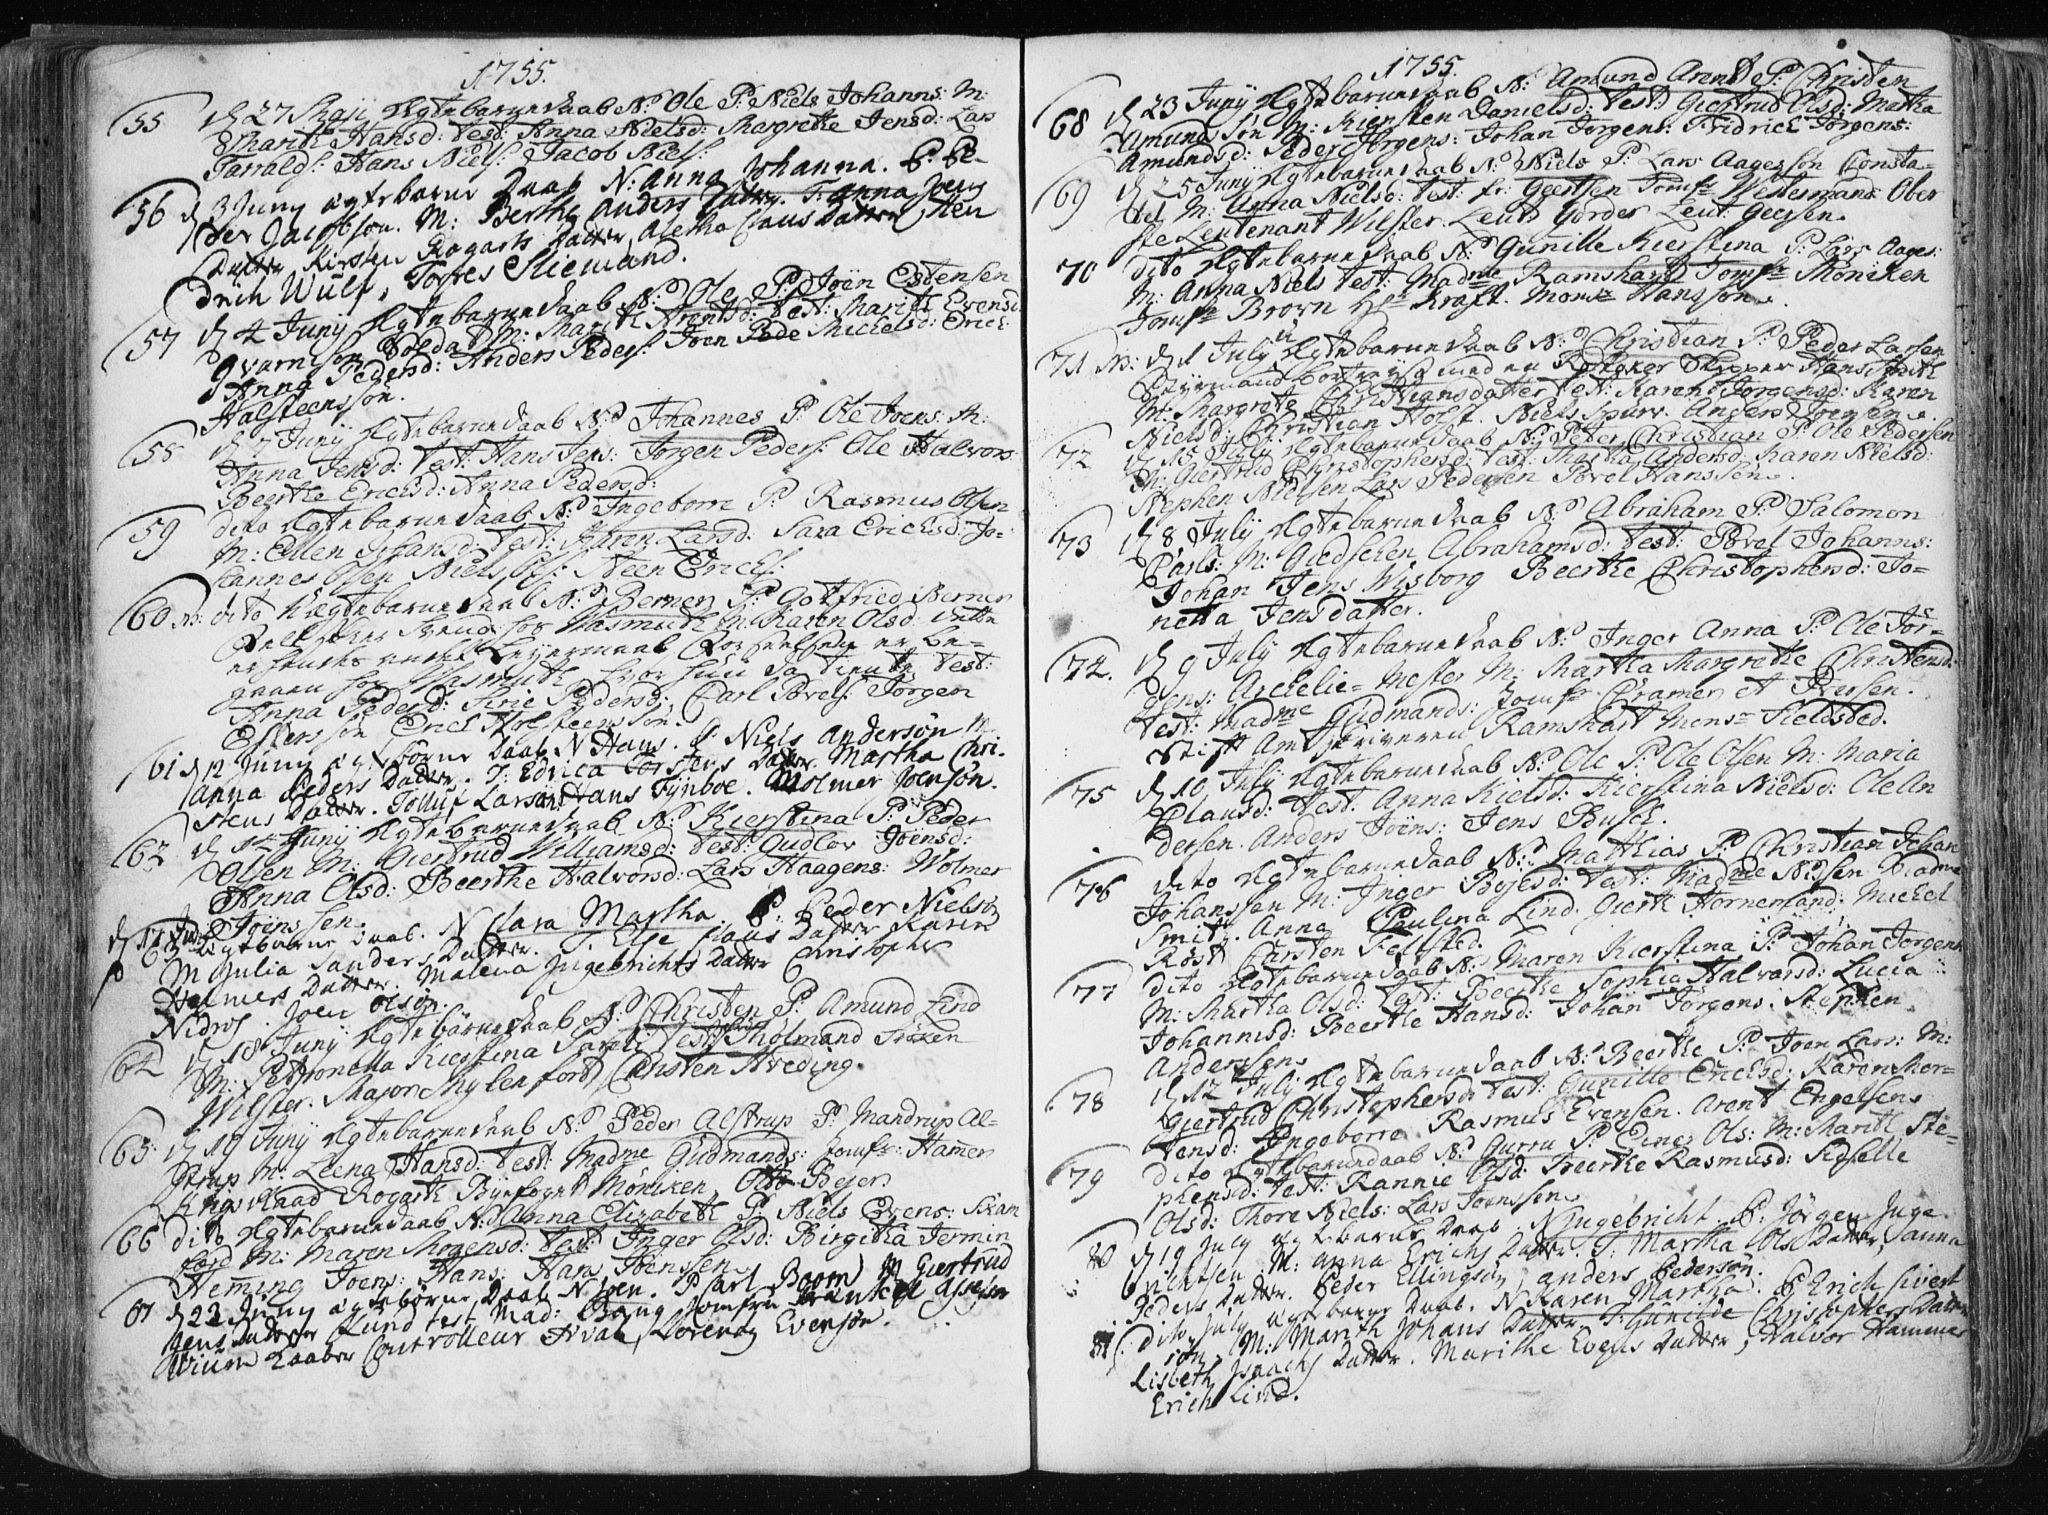 1755.
55 d 27 Maji Ægtebarnedaab N: Ole P: Niels Johanns: M:
Marith Hansd: test: Anna Nielsd: Margrethe Jensd: Lars
Tarralds: Hans Niels: Jacob Niels:
56 d 3 Juny ægtebarne Daab N: Anna Johanna. P: Pe-
der Jacobson. M: Berthe Anders Datter. T: Anna Joens
Datter Kirsten Rogarts Datter, Aletha Claus Datter, Hen
drich Wulf, Torres Sliemand.
57 d 4 Junij Ægtebarnedaab N: Ole P: Joen Estensen
Qvarnison Soldat M: Marith Arentsd: test: Marith Evensd:
Anna Pedersd: Anders Peders: Joen Pede Mickelsd: Erich
Halsteensøn.
58 d 7 Junij Ægtebarnedaab N: Johannes P: Ole Joens: M:
Anna Jensd: test: Hans Jens: Jørgen Peders: Ole Halvors:
Beerthe Ericksd: Anna Pedersd:
59 dito Ægtebarnedaab N: Ingeborre P: Rasmus Olsen
M: Ellen Johansd: test: Karen Larsd: Sara Ericksd: Jo-
hannes Olsen Niels Ols: Steen Ericks:
60 dito Uægtebarnedaab N: Berner P: Gotfried Berner
for Wasmuth M: Karen Olsd. dette
er hendes andet Leyermaal er be-
gaaen hos Wasmuth hvor hun da tiente test:
Anna Pedersd: Kirie Pedersd: Carl Povels: Jørgen
Espersøn Erick Halsteensøn.
61 d 12 Juny ægtebørne Daab N Hans. P Niels Andersøn M:
Anna Peders Datter. T: Edrica Torstens Datter Martha Chri-
stens Datter. Tolluf Larsøn Hans Fynboe. Wolmer Joensøn.
62 d Junij Ægtebarnedaab N: Kierstina P: Peder
Olsen M: Giertrud Williamsd: test: Gudlov Joensd:
Anna Olsd: Beerthe Halvorsd: Lars Haagens: Wolmer
Joenssen.
63 d 17 Juny ægtebarne Daab. N Clara Martha. P: Peder Nielsøn
M Julia Sanders Datter. T. Else Claus Datter Karen
Helmers Datter. Malena Ingebrichts Datter Christopher
Nidros. Joen Olsøn.
64 d 18 Junij Ægtebarnedaab N: Christen P: Amund Lind
M: Petronella Kierstina test: Holmand Frøken
Wilster. Major Mylenfordt Carsten Hveding.
65 d 19 Junij Ægtebarnedaab N: Peder Alstrup P: Mandrup Al-
strup M: Leena Hansd: test: Madme Gudmands: Jomfr: Hamer
Krigsraad Rogarth Byefoget Møniken, Otto Bejer.
66 dito Ægtebarnedaab N: Anna Elizabeth P: Niels Evens:
M: Maren Mogensd: test: Inger Olsd: Birgitha Jermin
Heming Joens: Hans: Hans Joenssen
67 d 23 Juny ægtebørne Daab N Joen. P Carl Boom M Giertrud
Jens Datter Rund test. Mad: Bang Jomfru
Controlleur Hval, Lorentz Evensøn.
1755.
68 d 23 Junij Ægtebarnedaab N: Amund Arent P: Christen
Amundsøn M: Kiersten Danielsd: test: Giertrud Olsd: Martha
Amundsd: Peder Jørgens: Johan Jørgens: Fridrich Jørgens:
69 d 25 Junij Ægtebarnedaab N: Niels P: Lars Aagessøn Consta-
bel M: Anna Nielsd: test: fr: Geertsen Jomfr: Westermans Ober
ste Leutenant Wilster Leut: Gørder Leut: Geersen.
70 dito Ægtebarnedaab N: Gunille Kierstina P: Lars Aages:
M: Anna Niels test: Madme Ramshart Jomfr Møniken
Jomfr Brøyn Hr Kraft. Mons: Hanssøn.
71 d 1 July Uægtebarnedaab N: Christian P: Peder Larsen
Styrmand bortreist med en Skipper Hans
M: Margrethe Christiansdatter test: Karen Jørgensd: Karen
Nielsd: Christian Holst. Niels Spurr. Anders Joensen.
72 d 15 July Ægtebarnedaab N: Peter Christian P: Ole Pedersen
M: Giertrud Christophersd: test: Martha Andersd: Karen Nielsd:
Stephen Nielsen Lars Pedersen Povel Hanssøn.
73 d 8 July Ægtebarnedaab N: Abraham P: Salomon
Carls: M: Giedschen Abrahamsd: test: Povel Johanns:
Johan Jens Wisborg Beerthe Christophersd: Jo-
netta Jensdatter.
74. d 9 July Ægtebarnedaab N: Inger Anna P: Ole Jør-
gens: Archelie-Mester M: Martha Margrethe Christensd:
test: Madme Gudmands: Jomfr Cramer et Iversen.
Stift Amtskriveren Ramshart Mons: Fieldsted.
75 d 10 July Ægtebarnedaab N: Ole P: Ole Olsen M: Maria
Clausd: test: Anna Kielsd: Kierstina Nielsd: Ole An
dersen. Anders Joens: Jens Busch.
76 dito Ægtebarnedaab N: Mathias P: Christian Johan
Johanssen M: Inger Boyesd: test: Madme Nissen Madme
Smith. Anna Paulina Lind. Gierth Hornemand: Michel
Rost Carsten Felfsted.
77 dito Ægtebarnedaab N: Maren Kierstina P: Johan Jørgens:
M: Martha Olsd: test: Beerthe Sophia Halvorsd: Lucia
Johannsd: Beerthe Hansd: Johan Jørgens: Stephen
Anderssen
78 d 12 July Ægtebarnedaab N: Beerthe P: Joen Lars: M:
Giertrud Christophersd: test: Gunille Ericksd: Karen Mor-
tensd: Ingeborre Rasmus Evensen. Arent Engelsen
79 dito Ægtebarnedaab N: Gurru P: Einer Ols: M: Marith Ste-
phensd: test: Rannie Olsd: Beerthe Rasmusd: Sidselle
Olsd: Thore Niels: Lars Joenssen
80 d 19 July ægtebarne Daab. N Ingebricht. P: Jørgen Inge-
brichtsen M: Anna Erichs Datter. T: Martha Ols Datter, Sanna
Peders Datter. Peder Ellingsøn, Anders Pedersøn.
81 dito July ægtebarne Daab. N Karen Martha. P Erich Sivert
søn. M: Marith Johans Datter T: Gunilde Christophers Datter
Lisbeth Isaachs Datter. Marithe Evens Datter, Halvor Hammer
Erich Lind.